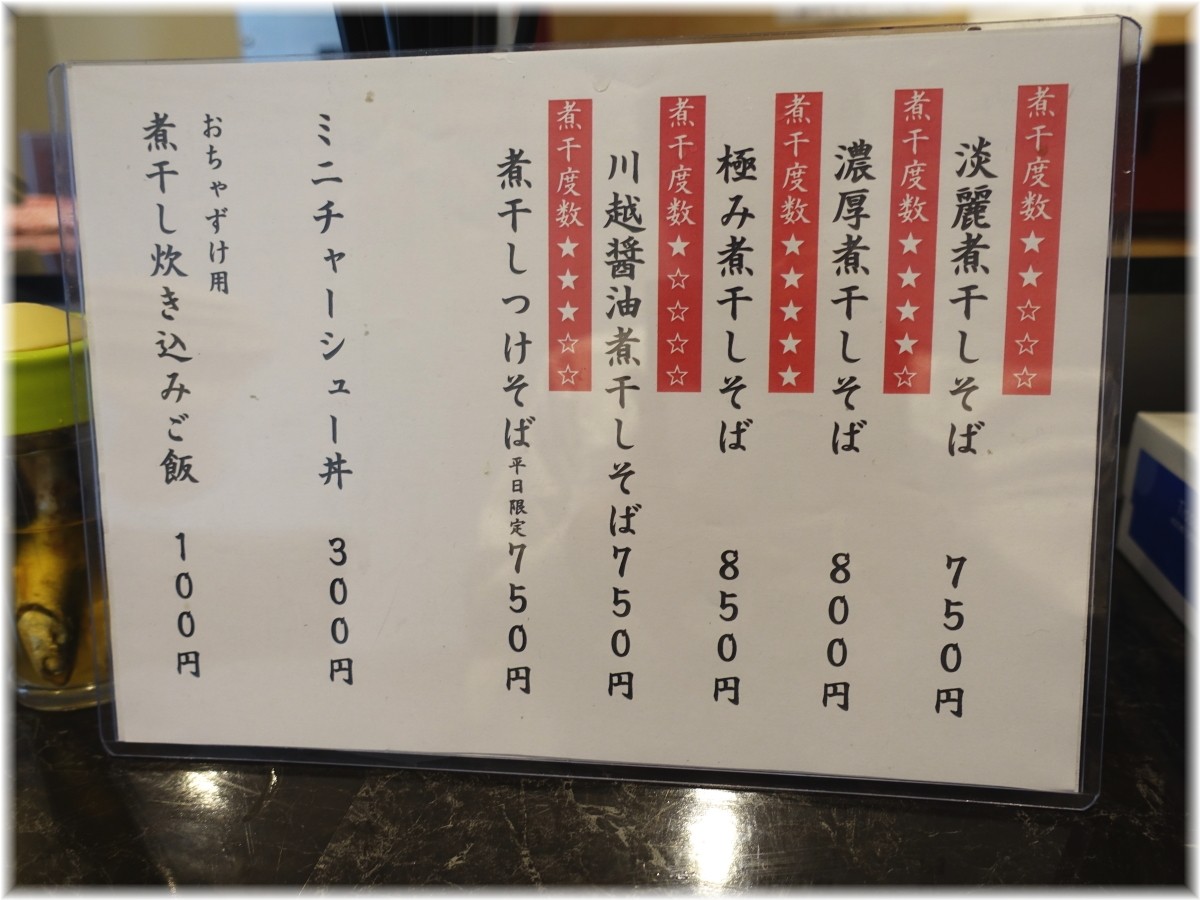 煮干度数★★☆☆☆
淡麗煮干しそば 750円
煮干度数★★★★☆
濃厚煮干しそば 800円
煮干度数★★★★★
極み煮干しそば 850円
煮干度数★☆☆☆☆
川越醤油煮干しそば750円
煮干度数★★★☆☆
煮干しつけそば平日限定750円
ミニチャーシュー丼 300円
おちゃずけ用
煮干し炊き込みご飯 100円